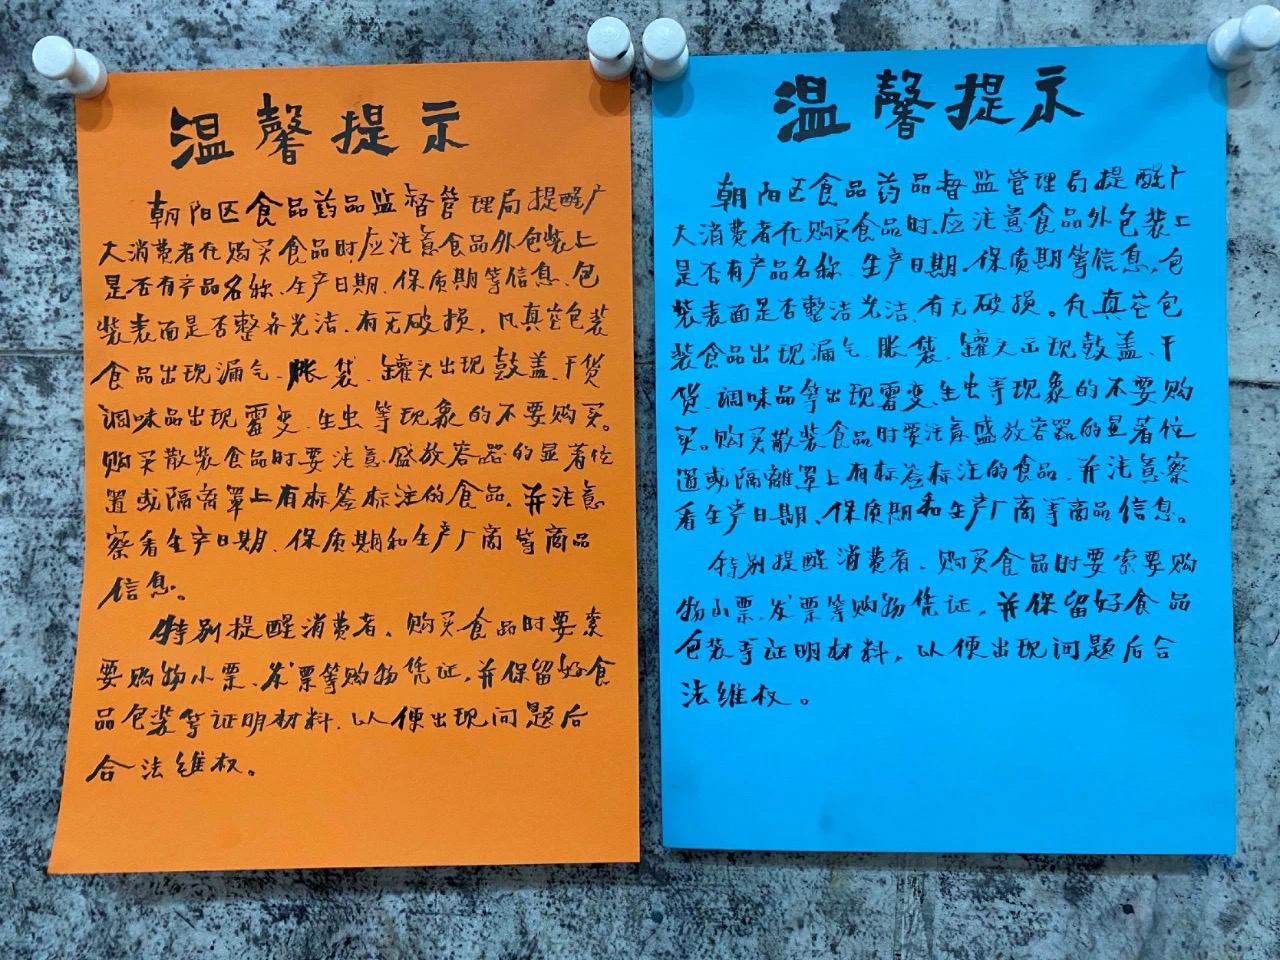 温馨提示
朝阳区食品药品监督管理局提醒广
大消费者在购买食品时应注意食品外包装上
是否有产品名称、生产日期、保质期等信息、包
装表面是否整齐光洁、有无破损。凡真空包装
食品出现漏气、胀袋、罐头出现鼓盖、干货
调味品出现霉变、生虫等现象的不要购买。
购买散装食品时要注意盛放容器的显著位
置或隔离罩上有标签标注的食品，并注意
察看生产日期、保质期和生产厂商等商品
信息。
特别提醒消费者、购买食品时要索
要购物小票、发票等购物凭证，并保留好食
品包装等证明材料、以便出现问题后
合法维权。
温馨提示
朝阳区食品药品督监管理局提醒广
大消费者在购买食品时、应注意食品外包装上
是否有产品名称、生产日期、保质期等信息，包
装表面是否整洁光洁、有无破损。凡真空包
装食品出现漏气、胀袋、罐头出现鼓盖、干
货、调味品等出现霉变、生虫等现象的不要购
买。购买散装食品时要注意盛放容器的显著位
置或隔离罩上有标签标注的食品、并注意察
看生产日期、保质期和生产厂商等商品信息。
特别提醒消费者、购买食品时要索要购
物小票、发票等购物凭证，并保留好食品
包装等证明材料，以便出现问题后合
法维权。